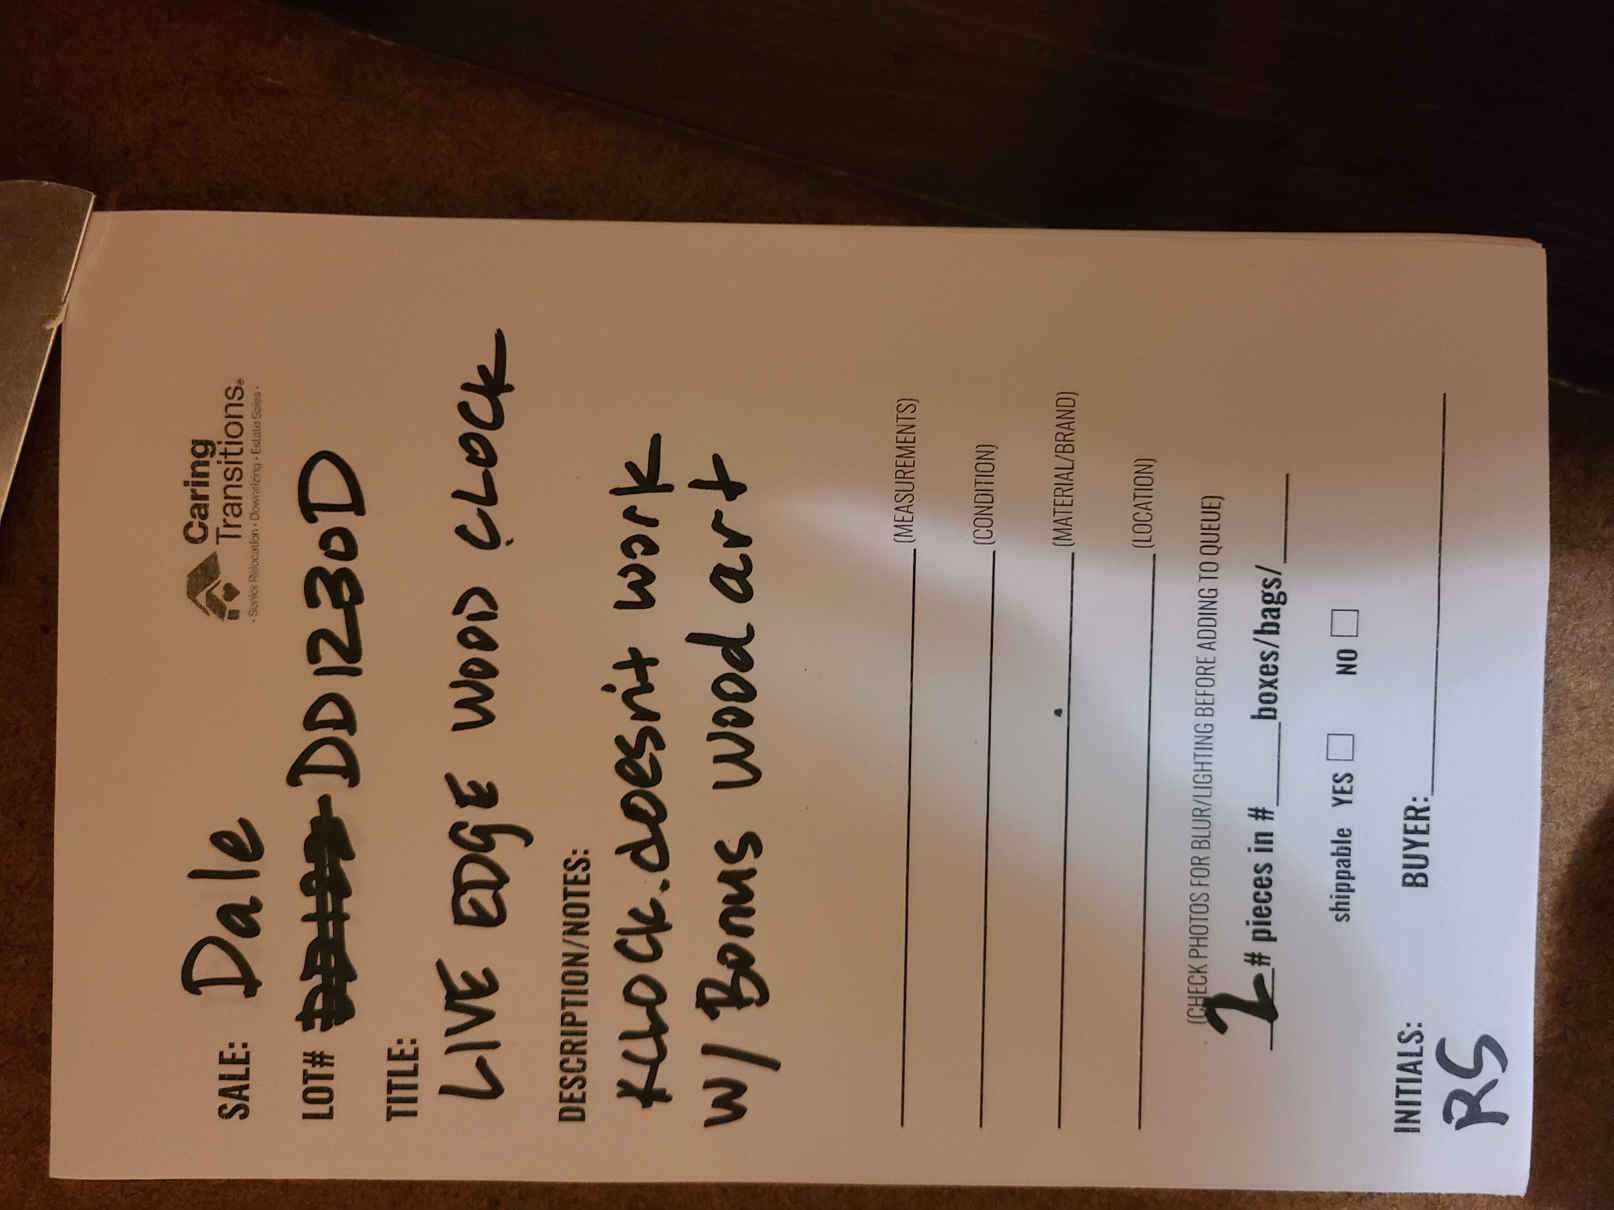 Caring
Transitions®
• Senior Relocation • Downsizing • Estate Sales •
SALE: Dale
LOT# DD1230D
TITLE:
LIVE EDGE WOOD CLOCK
DESCRIPTION/NOTES:
*CLOCK.doesn't work
W/ Bonus wood art
(MEASUREMENTS)
(CONDITION)
(MATERIAL/BRAND)
(LOCATION)
(CHECK PHOTOS FOR BLUR/LIGHTING BEFORE ADDING TO QUEUE)
2 # pieces in # boxes/bags/
shippable YES ☐ NO ☐
INITIALS: BUYER:
RS